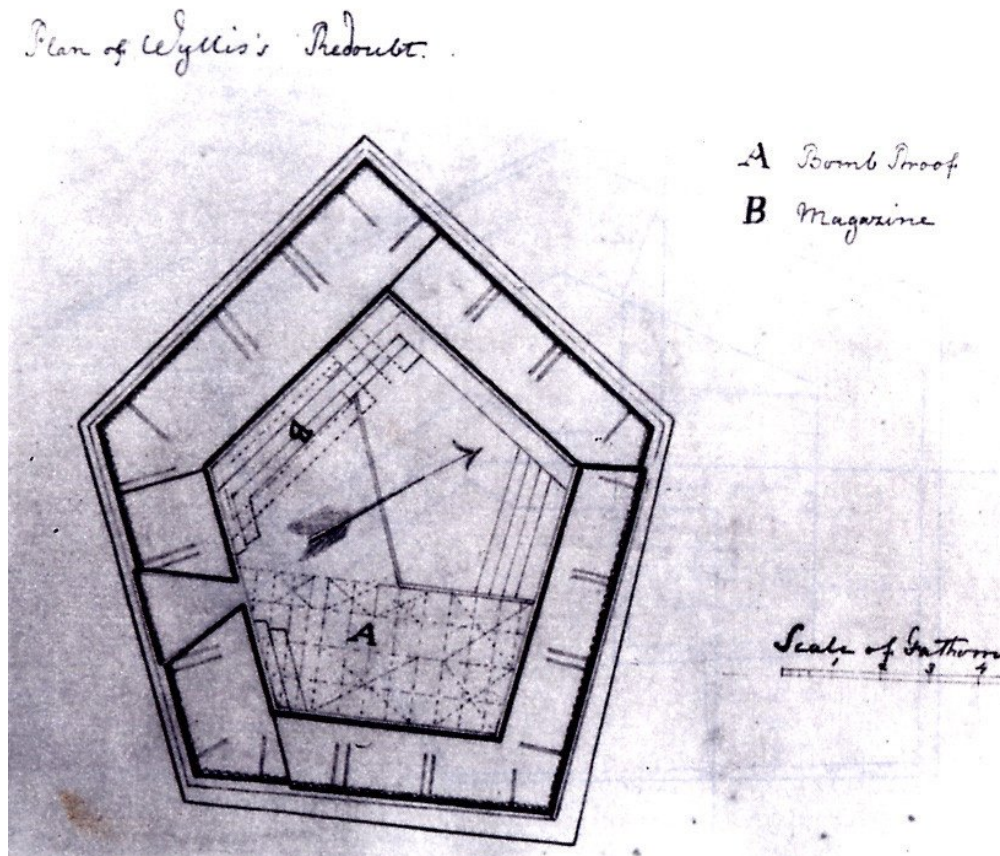 Plan of Wyllis's Redoubt.
A Bomb Proof
B Magazine
B
A
Scale of Fathoms
1 2 3 4